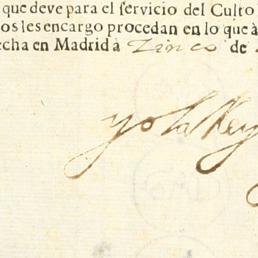 que deve para el servicio del Culto
os les encargo procedan en lo que à
echa en Madrid à Zinco de
yo la Rey